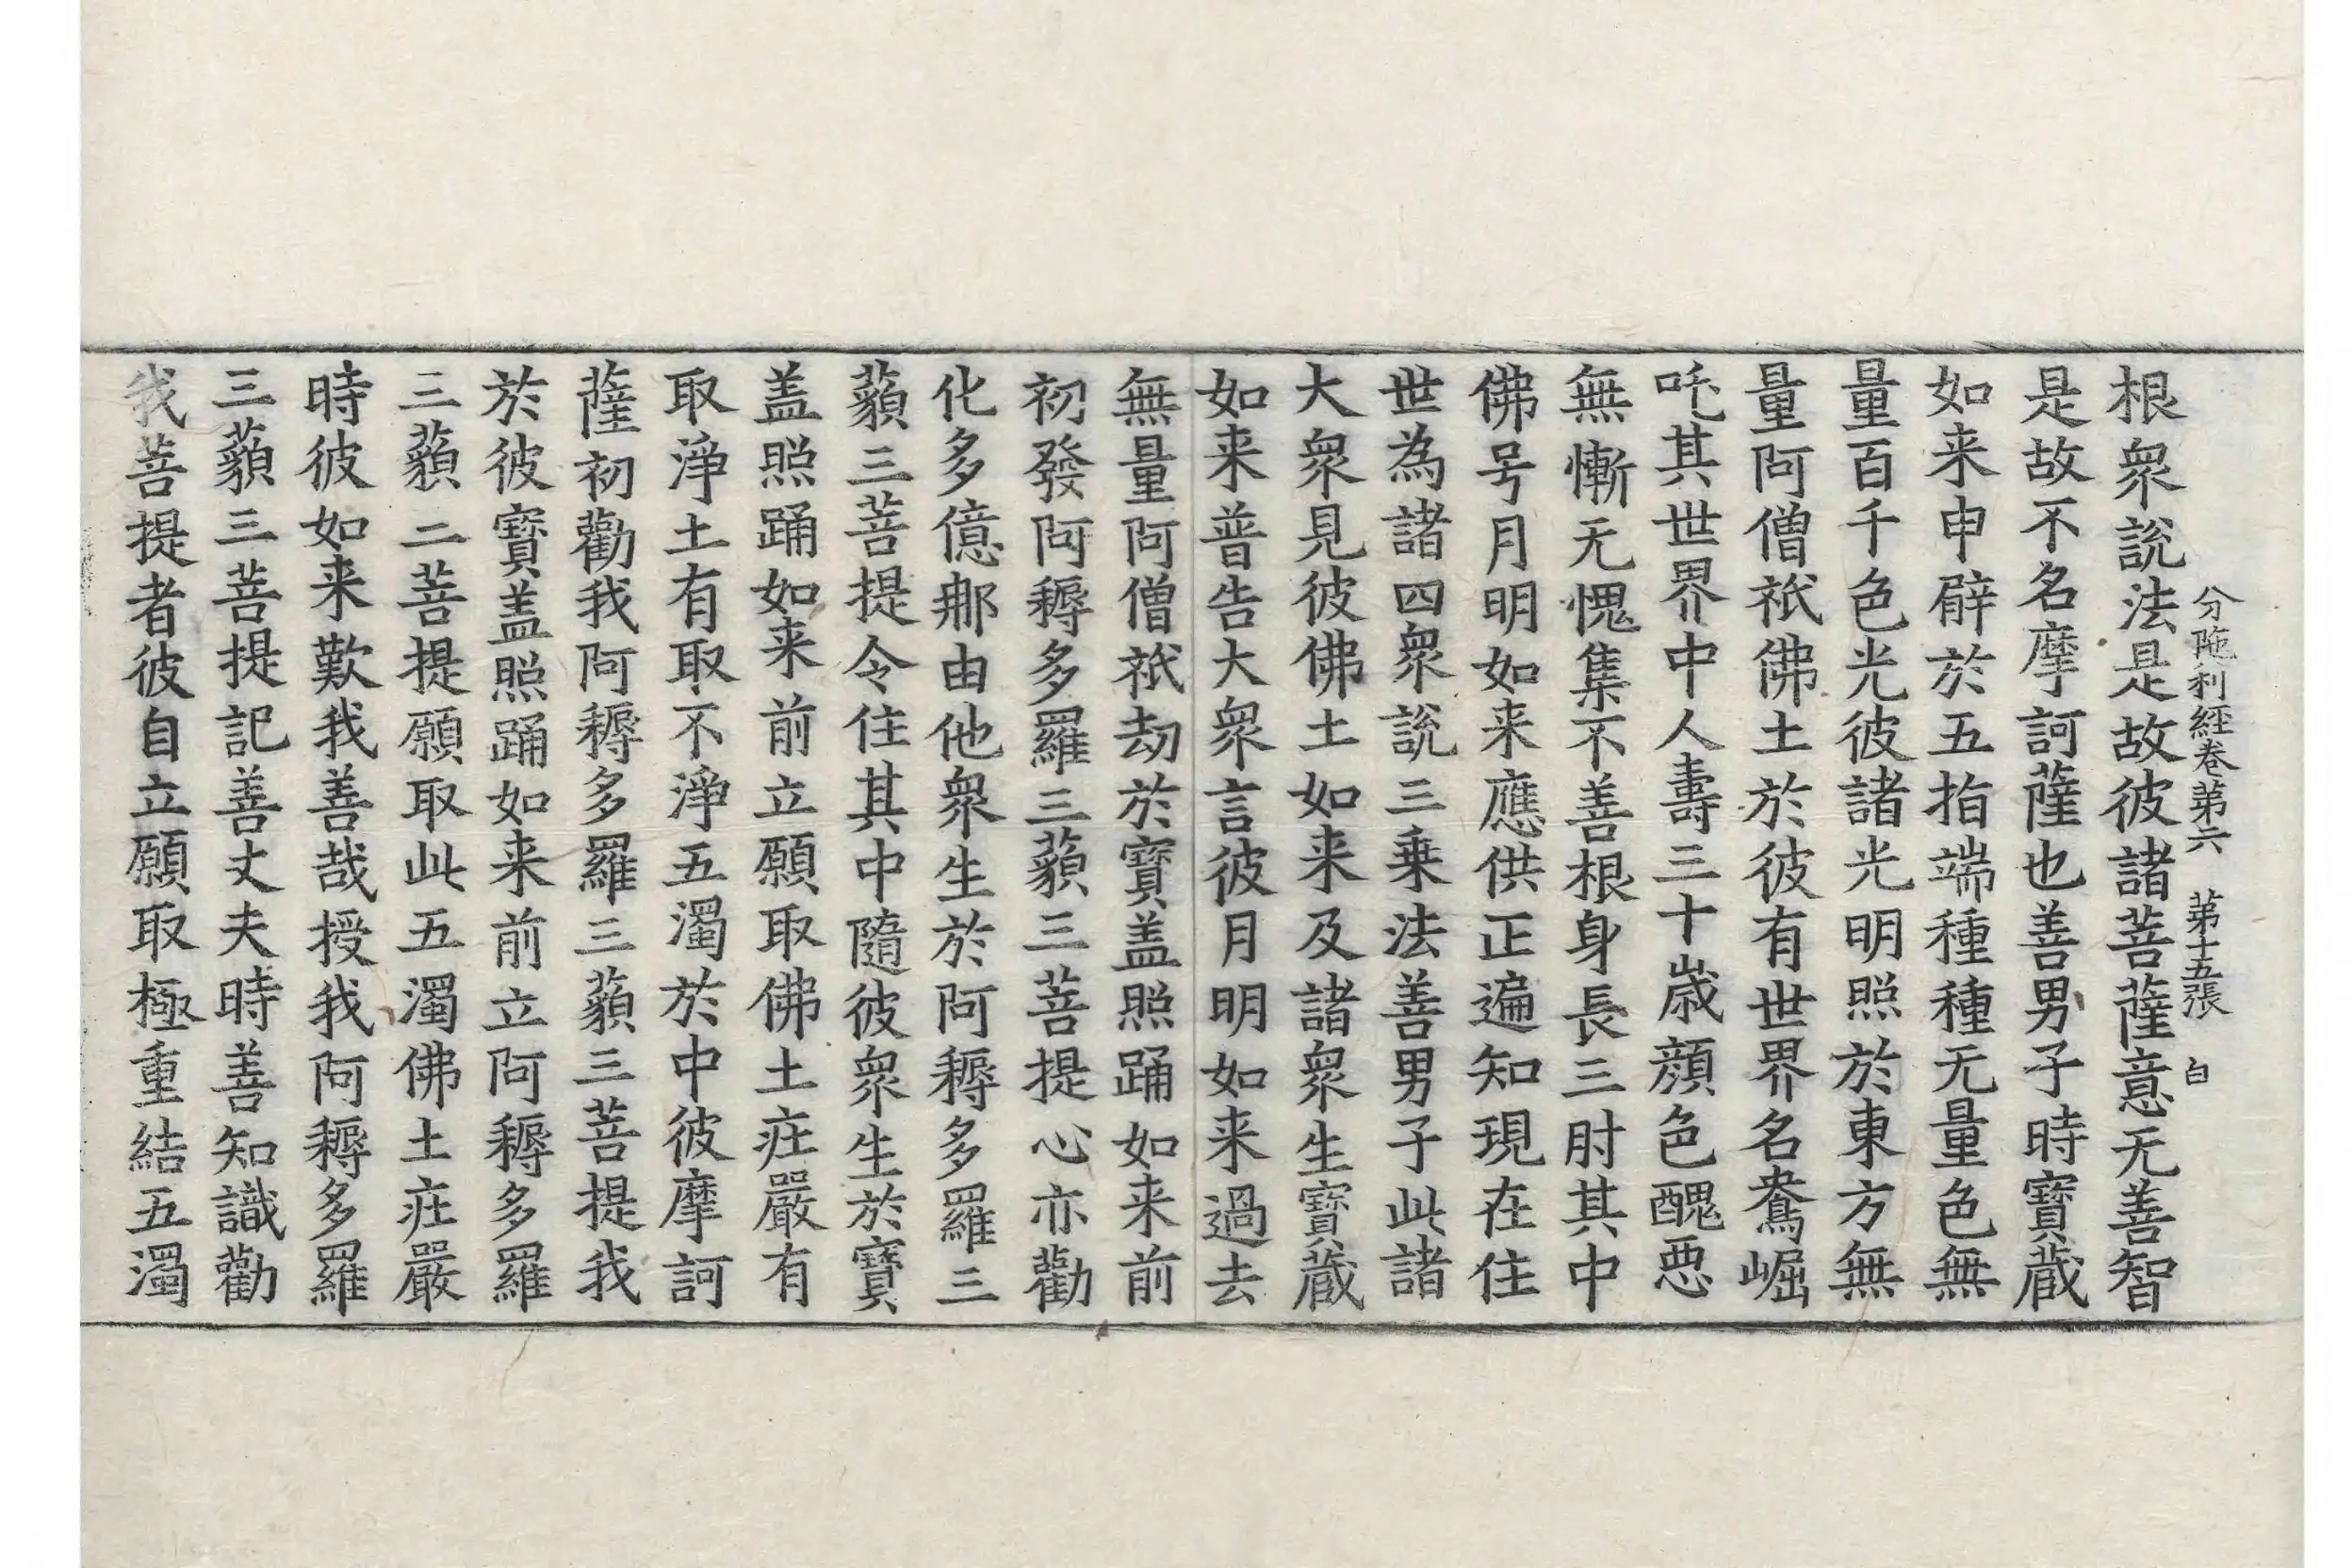 根衆說法是故彼諸菩薩意无善智
分陁利經卷第六 第十五張 白
是故不名摩訶薩也善男子時寶藏
如来申臂於五指端種種无量色無
量百千色光彼諸光明照於東方無
量阿僧祇佛土於彼有世界名鴦崛
吒其世界中人壽三十歲顔色醜悪
無慚无愧集不善根身長三肘其中
佛号月明如来應供正遍知現在住
世為諸四衆說三乗法善男子此諸
大衆見彼佛土如来及諸衆生寶藏
如来普告大衆言彼月明如来過去
無量阿僧祇劫於寶盖照踊如来前
初發阿耨多羅三藐三菩提心亦勸
化多億那由他衆生於阿耨多羅三
藐三菩提令住其中隨彼衆生於寶
盖照踊如来前立願取佛土庄嚴有
取淨土有取不淨五濁於中彼摩訶
薩初勸我阿耨多羅三藐三菩提我
於彼寶盖照踊如来前立阿耨多羅
三藐二菩提願取此五濁佛土庄嚴
時彼如来歎我善哉授我阿耨多羅
三藐三菩提記善丈夫時善知識勸
我菩提者彼自立願取極重結五濁